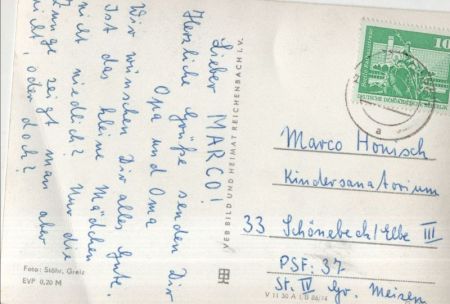 Lieber MARCO!
Herzliche Grüße senden Dir
Opa und Oma
Wir wünschen Dir alles Gute.
Ist das kleine Mädchen
nicht niedlich? Nur die
Zunge zeigt man aber
nicht, oder doch?
Foto: Stöhr, Greiz
EVP 0,20 M
VEB BILD UND HEIMAT REICHENBACH I. V.
10
Marco Honisch
Kindersanatorium
33 Schönebeck/Elbe III
PSF: 37
St. IV Gr. Meisen